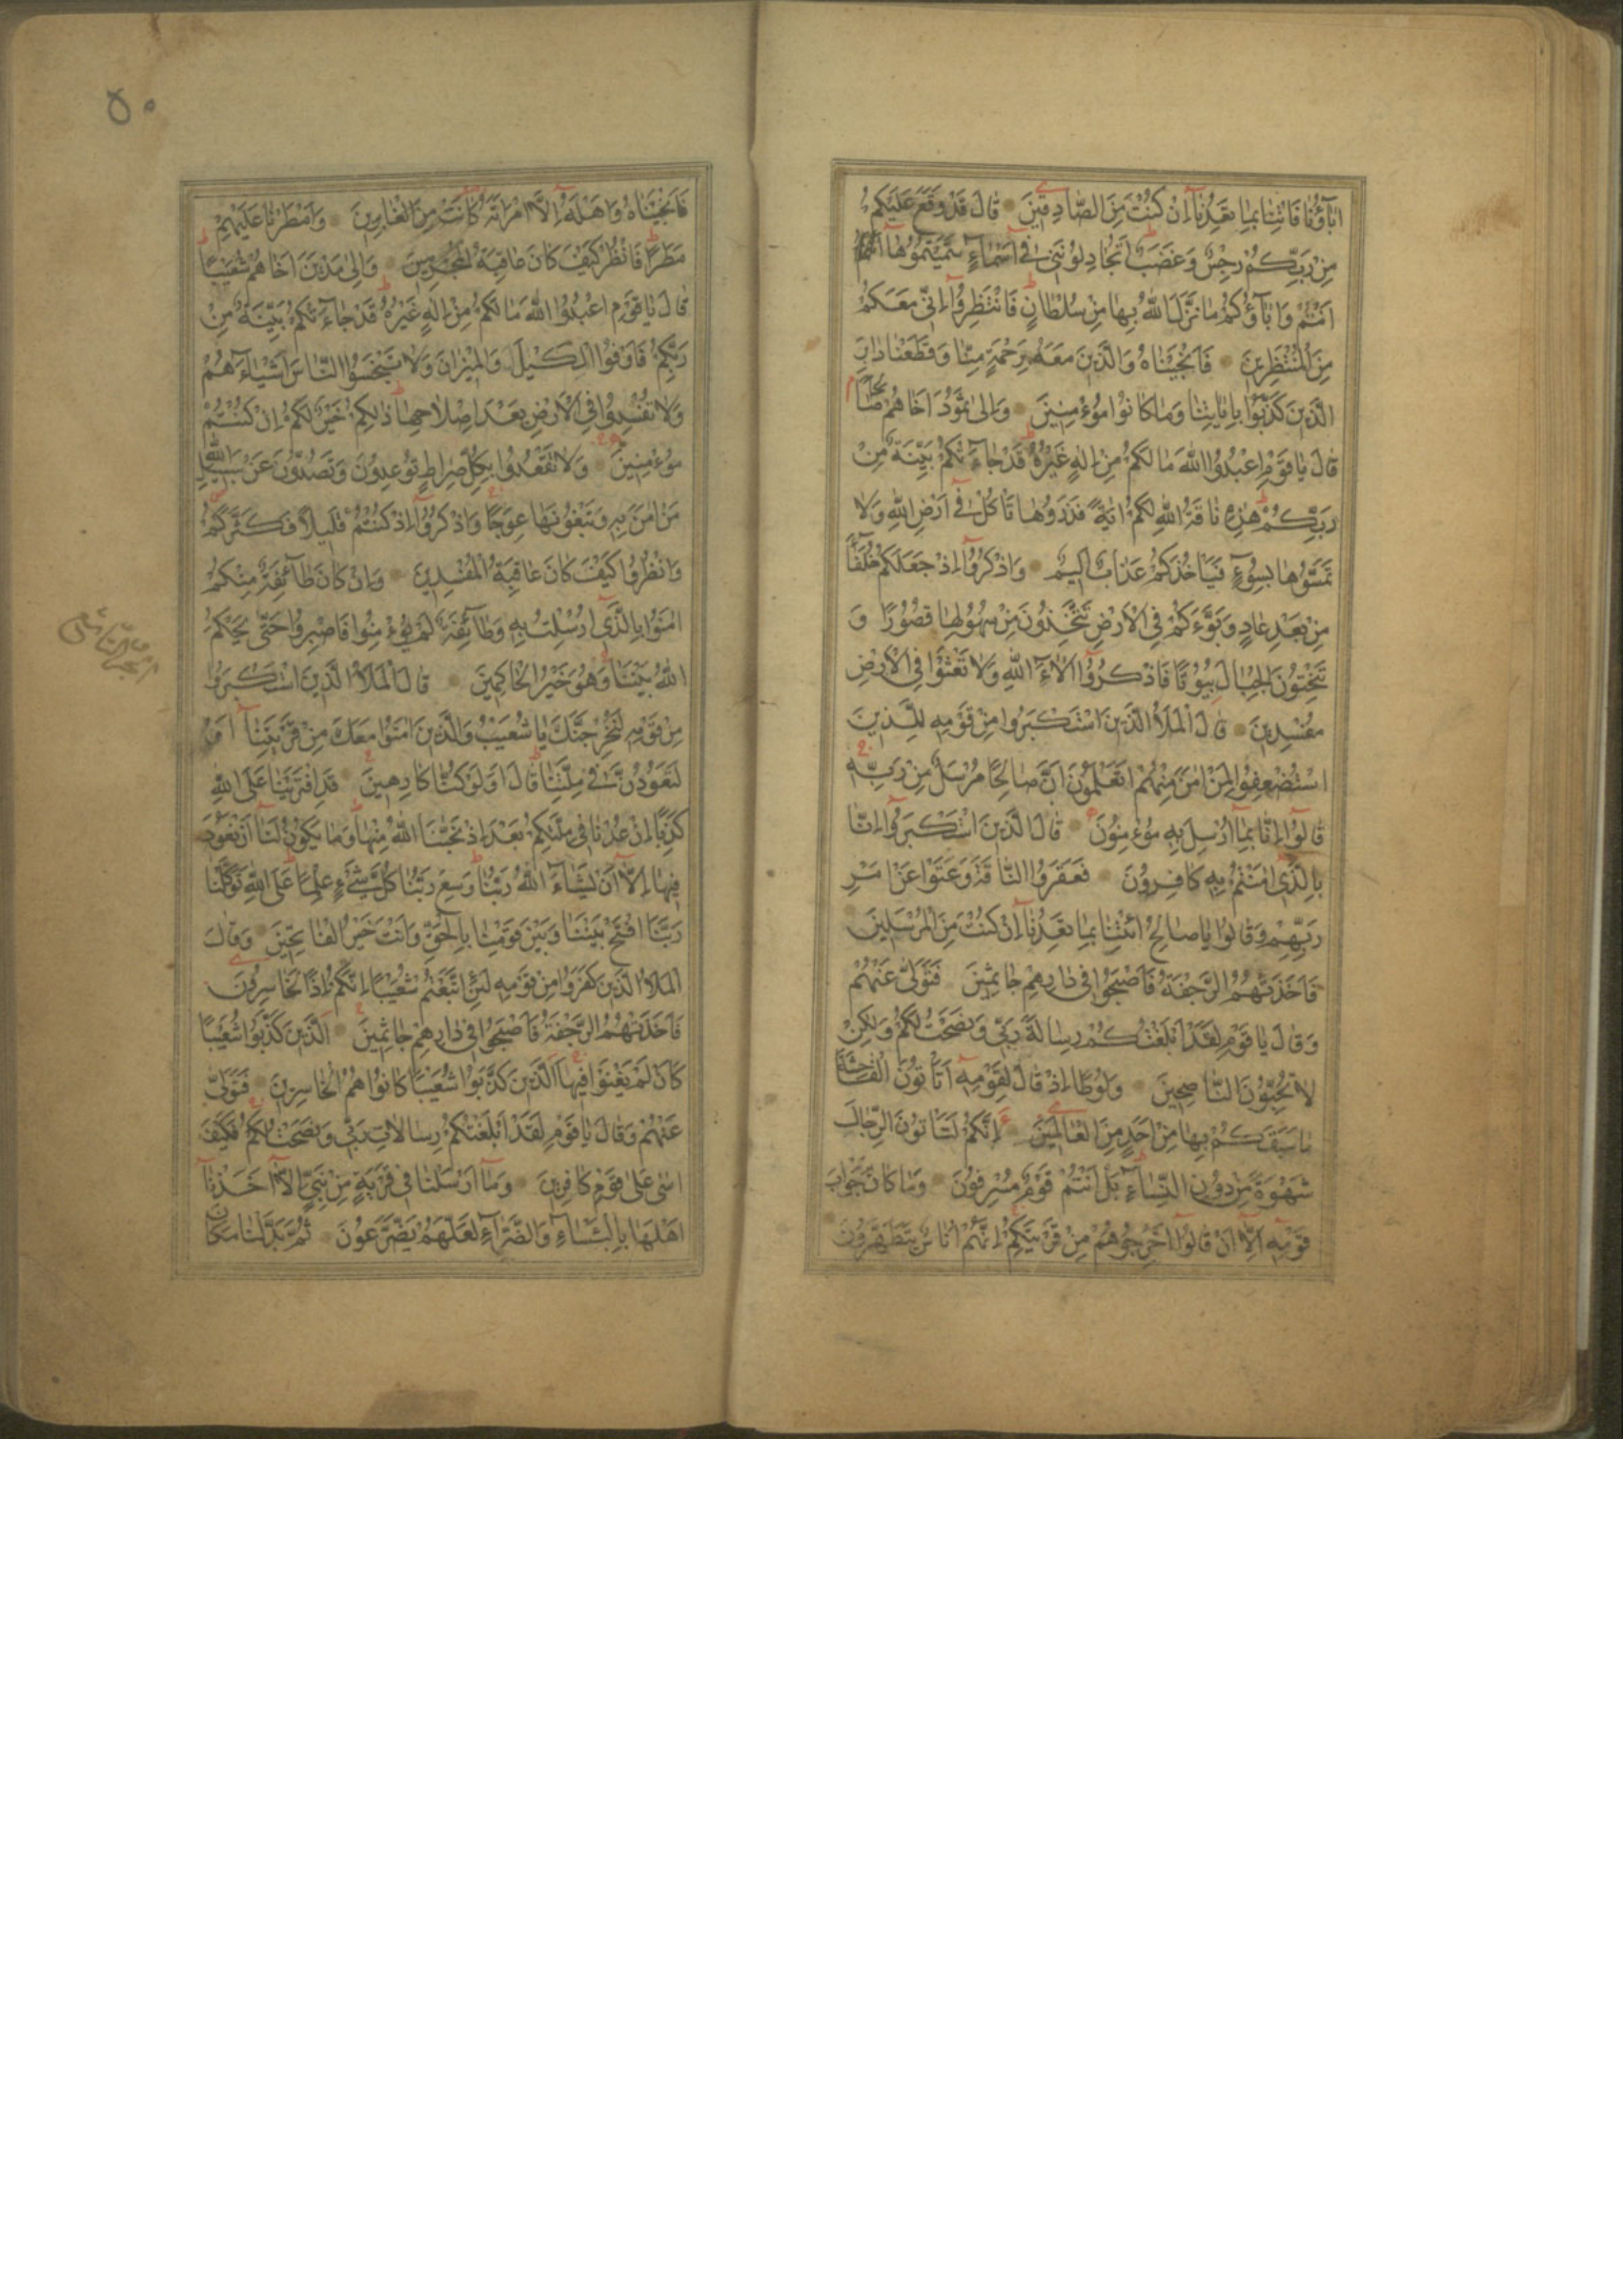 اٰبَآؤُنَا فَاْتِنَا بِمَا تَعِدُنَآ اِنْ كُنْتَ مِنَ الصَّادِقِينَ قَالَ قَدْ وَقَعَ عَلَيْكُمْ
مِنْ رَبِّكُمْ رِجْسٌ وَغَضَبٌ اَتُجَادِلُونَنِي فِٓي اَسْمَآءٍ سَمَّيْتُمُوهَآ
اَنْتُمْ وَاٰبَآؤُكُمْ مَا نَزَّلَ اللّٰهُ بِهَا مِنْ سُلْطَانٍ فَانْتَظِرُوٓا اِنِّي مَعَكُمْ
مِنَ الْمُنْتَظِرِينَ فَاَنْجَيْنَاهُ وَالَّذِينَ مَعَهُ بِرَحْمَةٍ مِنَّا وَقَطَعْنَا دَابِرَ
الَّذِينَ كَذَّبُوا بِاٰيَاتِنَا وَمَا كَانُوا مُؤْمِنِينَ وَاِلٰى ثَمُودَ اَخَاهُمْ صَالِحًا
قَالَ يَا قَوْمِ اعْبُدُوا اللّٰهَ مَا لَكُمْ مِنْ اِلٰهٍ غَيْرُهُ قَدْ جَآءَتْكُمْ بَيِّنَةٌ مِنْ
رَبِّكُمْ هٰذِهِ نَاقَةُ اللّٰهِ لَكُمْ اٰيَةً فَذَرُوهَا تَاْكُلْ فِٓي اَرْضِ اللّٰهِ وَلَا
تَمَسُّوهَا بِسُوٓءٍ فَيَاْخُذَكُمْ عَذَابٌ اَلِيمٌ وَاذْكُرُوٓا اِذْ جَعَلَكُمْ خُلَفَآءَ
مِنْ بَعْدِ عَادٍ وَبَوَّءَكُمْ فِي الْاَرْضِ تَتَّخِذُونَ مِنْ سُهُولِهَا قُصُورًا وَ
تَنْحِتُونَ الْجِبَالَ بُيُوتًا فَاذْكُرُوٓا اٰلَآءَ اللّٰهِ وَلَا تَعْثَوْا فِي الْاَرْضِ
مُفْسِدِينَ قَالَ الْمَلَاُ الَّذِينَ اسْتَكْبَرُوا مِنْ قَوْمِهِ لِلَّذِينَ
اسْتُضْعِفُوا لِمَنْ اٰمَنَ مِنْهُمْ اَتَعْلَمُونَ اَنَّ صَالِحًا مُرْسَلٌ مِنْ رَبِّهِ
قَالُوٓا اِنَّا بِمَآ اُرْسِلَ بِهِ مُؤْمِنُونَ قَالَ الَّذِينَ اسْتَكْبَرُوٓا اِنَّا
بِالَّذِٓي اٰمَنْتُمْ بِهِ كَافِرُونَ فَعَقَرُوا النَّاقَةَ وَعَتَوْا عَنْ اَمْرِ
رَبِّهِمْ وَقَالُوا يَا صَالِحُ ائْتِنَا بِمَا تَعِدُنَآ اِنْ كُنْتَ مِنَ الْمُرْسَلِينَ
فَاَخَذَتْهُمُ الرَّجْفَةُ فَاَصْبَحُوا فِي دَارِهِمْ جَاثِمِينَ فَتَوَلّٰى عَنْهُمْ
وَقَالَ يَا قَوْمِ لَقَدْ اَبْلَغْتُكُمْ رِسَالَةَ رَبِّي وَنَصَحْتُ لَكُمْ وَلٰكِنْ
لَا تُحِبُّونَ النَّاصِحِينَ وَلُوطًا اِذْ قَالَ لِقَوْمِهِٓ اَتَاْتُونَ الْفَاحِشَةَ
مَا سَبَقَكُمْ بِهَا مِنْ اَحَدٍ مِنَ الْعَالَمِينَ اِنَّكُمْ لَتَاْتُونَ الرِّجَالَ
شَهْوَةً مِنْ دُونِ النِّسَآءِ بَلْ اَنْتُمْ قَوْمٌ مُسْرِفُونَ وَمَا كَانَ جَوَابَ
قَوْمِهِٓ اِلَّآ اَنْ قَالُوٓا اَخْرِجُوهُمْ مِنْ قَرْيَتِكُمْ اِنَّهُمْ اُنَاسٌ يَتَطَهَّرُونَ
٥٠
فَاَنْجَيْنَاهُ وَاَهْلَهُٓ اِلَّا امْرَاَتَهُ كَانَتْ مِنَ الْغَابِرِينَ وَاَمْطَرْنَا عَلَيْهِمْ
مَطَرًا فَانْظُرْ كَيْفَ كَانَ عَاقِبَةُ الْمُجْرِمِينَ وَاِلٰى مَدْيَنَ اَخَاهُمْ شُعَيْبًا
قَالَ يَا قَوْمِ اعْبُدُوا اللّٰهَ مَا لَكُمْ مِنْ اِلٰهٍ غَيْرُهُ قَدْ جَآءَتْكُمْ بَيِّنَةٌ مِنْ
رَبِّكُمْ فَاَوْفُوا الْكَيْلَ وَالْمِيزَانَ وَلَا تَبْخَسُوا النَّاسَ اَشْيَآءَهُمْ
وَلَا تُفْسِدُوا فِي الْاَرْضِ بَعْدَ اِصْلَاحِهَا ذٰلِكُمْ خَيْرٌ لَكُمْ اِنْ كُنْتُمْ
مُؤْمِنِينَ وَلَا تَقْعُدُوا بِكُلِّ صِرَاطٍ تُوعِدُونَ وَتَصُدُّونَ عَنْ سَبِيلِ اللّٰهِ
مَنْ اٰمَنَ بِهِ وَتَبْغُونَهَا عِوَجًا وَاذْكُرُوٓا اِذْ كُنْتُمْ قَلِيلًا فَكَثَّرَكُمْ
وَانْظُرُوا كَيْفَ كَانَ عَاقِبَةُ الْمُفْسِدِينَ وَاِنْ كَانَ طَآئِفَةٌ مِنْكُمْ
اٰمَنُوا بِالَّذِٓي اُرْسِلْتُ بِهِ وَطَآئِفَةٌ لَمْ يُؤْمِنُوا فَاصْبِرُوا حَتّٰى يَحْكُمَ
اللّٰهُ بَيْنَنَا وَهُوَ خَيْرُ الْحَاكِمِينَ قَالَ الْمَلَاُ الَّذِينَ اسْتَكْبَرُوا
مِنْ قَوْمِهِ لَنُخْرِجَنَّكَ يَا شُعَيْبُ وَالَّذِينَ اٰمَنُوا مَعَكَ مِنْ قَرْيَتِنَآ اَوْ
لَتَعُودُنَّ فِي مِلَّتِنَا قَالَ اَوَلَوْ كُنَّا كَارِهِينَ قَدِ افْتَرَيْنَا عَلَى اللّٰهِ
كَذِبًا اِنْ عُدْنَا فِي مِلَّتِكُمْ بَعْدَ اِذْ نَجّٰنَا اللّٰهُ مِنْهَا وَمَا يَكُونُ لَنَآ اَنْ نَعُودَ
فِيهَآ اِلَّآ اَنْ يَشَآءَ اللّٰهُ رَبُّنَا وَسِعَ رَبُّنَا كُلَّ شَيْءٍ عِلْمًا عَلَى اللّٰهِ تَوَكَّلْنَا
رَبَّنَا افْتَحْ بَيْنَنَا وَبَيْنَ قَوْمِنَا بِالْحَقِّ وَاَنْتَ خَيْرُ الْفَاتِحِينَ وَقَالَ
الْمَلَاُ الَّذِينَ كَفَرُوا مِنْ قَوْمِهِ لَئِنِ اتَّبَعْتُمْ شُعَيْبًا اِنَّكُمْ اِذًا لَخَاسِرُونَ
فَاَخَذَتْهُمُ الرَّجْفَةُ فَاَصْبَحُوا فِي دَارِهِمْ جَاثِمِينَ اَلَّذِينَ كَذَّبُوا شُعَيْبًا
كَاَنْ لَمْ يَغْنَوْا فِيهَا اَلَّذِينَ كَذَّبُوا شُعَيْبًا كَانُوا هُمُ الْخَاسِرِينَ فَتَوَلّٰى
عَنْهُمْ وَقَالَ يَا قَوْمِ لَقَدْ اَبْلَغْتُكُمْ رِسَالَاتِ رَبِّي وَنَصَحْتُ لَكُمْ فَكَيْفَ
اٰسٰى عَلٰى قَوْمٍ كَافِرِينَ وَمَآ اَرْسَلْنَا فِي قَرْيَةٍ مِنْ نَبِيٍّ اِلَّآ اَخَذْنَآ
اَهْلَهَا بِالْبَاْسَآءِ وَالضَّرَّآءِ لَعَلَّهُمْ يَضَّرَّعُونَ ثُمَّ بَدَّلْنَا مَكَانَ